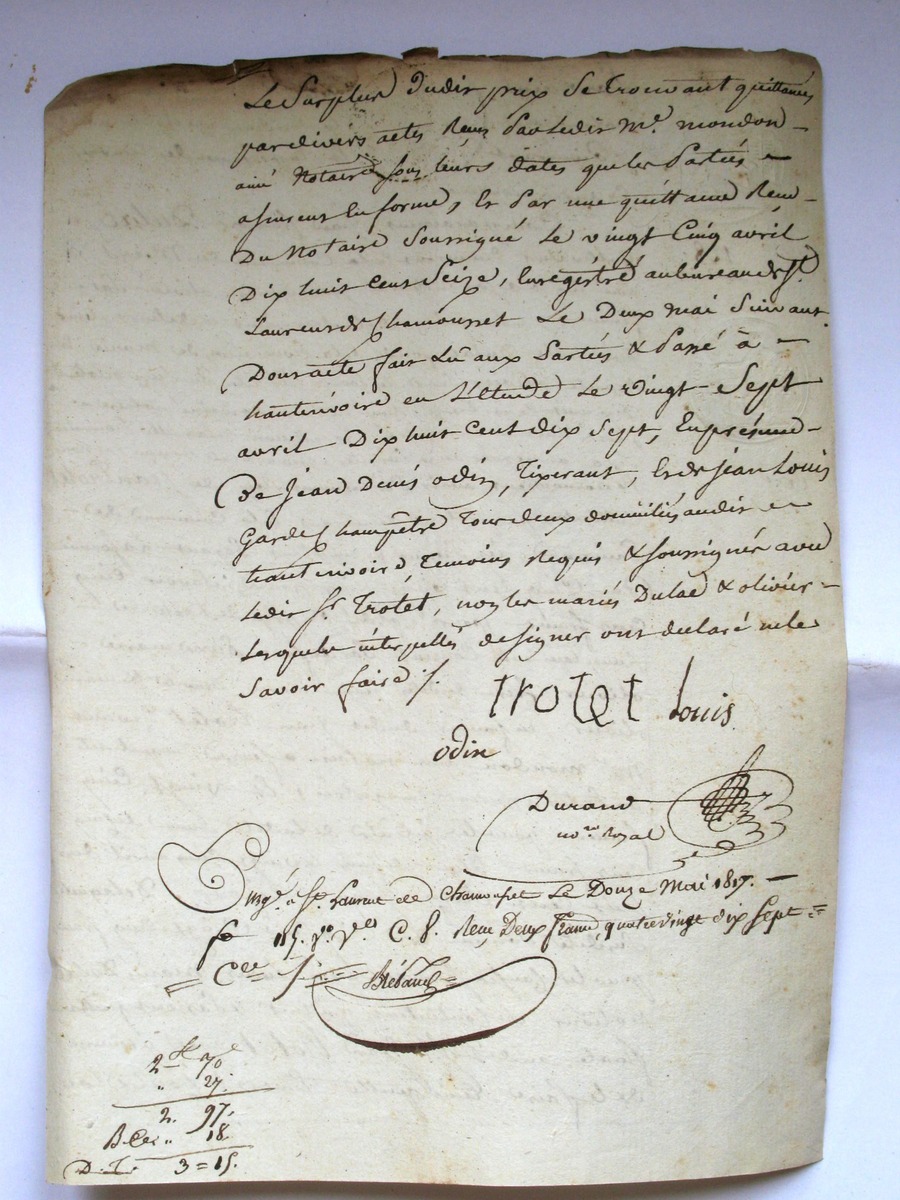 Le Surplus dudit prix se trouvant quittancé
par divers actes Recus Par Ledit Me. mondon
ainé Notaire sous leurs dates que les Parties
assurent En forme, Et Par une quittance Recue
Du Notaire Soussigné Le vingt Cinq avril
Dix huit Cent Seize, Enregistré au bureau de St.
Laurent de Chamousset Le Deux mai Suivant.
Dont acte fait Lu aux Parties & Passé à
hauterivoire en L'étude Le vingt Sept
avril Dix huit Cent dix Sept, En présence
De Jean Denis odin, Tixerant, Et de Jean Louis
Garde Champêtre Tous deux domiciliés audit
hauterivoire, Temoins Requis & soussignés avec
Ledit Sr. Trotet, non les mariés Dulac & olivier
Lesquels interpellés de signer ont declaré ne le
Savoir faire /.
trotet Louis
odin
Durand
nore Royal
Enrgé. a St. Laurent de Chamousset Le Douze Mai 1817.
fo 115. Ro. C. 8. Recu Deux francs quatre vingt dix Sept
Cmes /.
2 70
" 27.
2. 97.
18
D. T. 3 = 15.